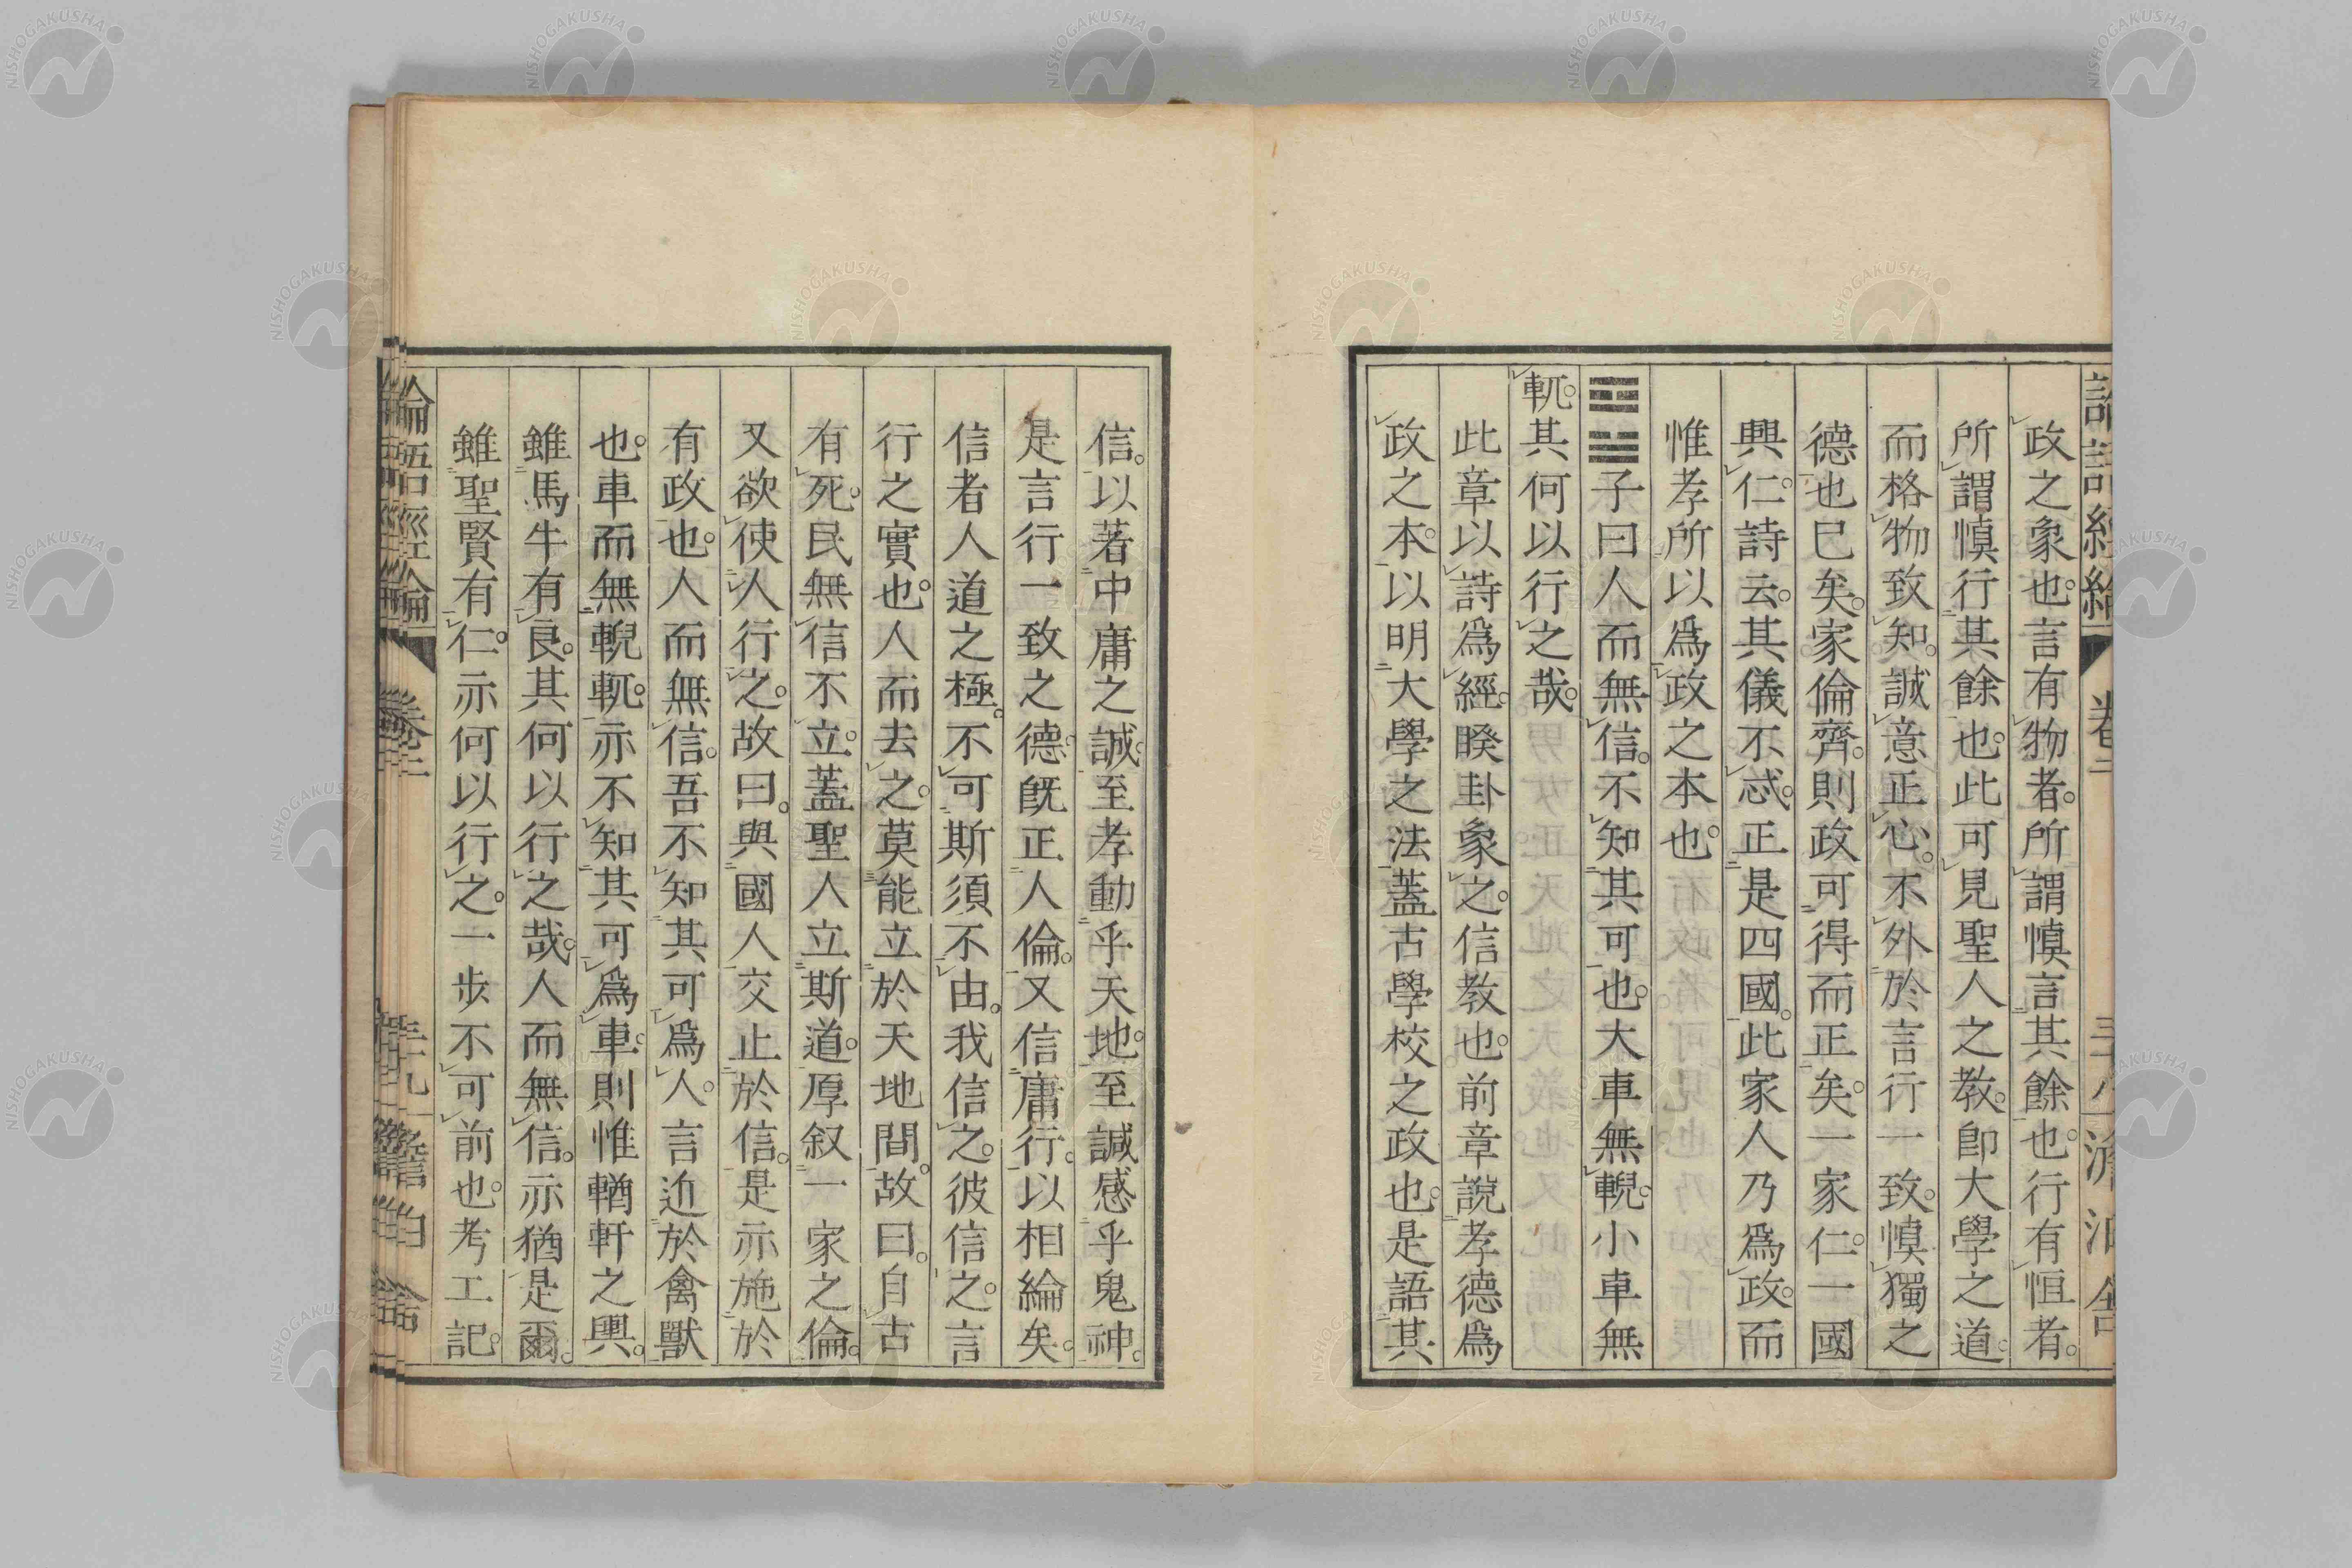 政之象也。言有物者。所謂慎言其餘也。行有恒者。
所謂慎行其餘也。此可見聖人之教。即大學之道。
而格物致知。誠意正心。不外於言行一致。慎獨之
德也已矣。家倫齊。則政可得而正矣。一家仁。一國
興仁。詩云。其儀不忒。正是四國。此家人乃爲政。而
惟孝所以爲政之本也。
䷥子曰人而無信。不知其可也。大車無輗。小車無
軏。其何以行之哉。
此章以詩爲經。睽卦象之。信教也。前章說孝德爲
政之本。以明大學之法。蓋古學校之政也。是語其
信。以著中庸之誠。至孝動乎天地。至諴感乎鬼神。
是言行一致之德。既正人倫。又信庸行。以相綸矣。
信者人道之極。不可斯須不由。我信之。彼信之。言
行之實也。人而去之。莫能立於天地間。故曰。自古
有死。民無信不立。蓋聖人立斯道。厚叙一家之倫。
又欲使人行之。故曰。與國人交止於信。是亦施於
有政也。人而無信。吾不知其可爲人。言近於禽獸
也。車而無輗軏。亦不知其可爲車。則惟輶軒之輿。
雖馬牛有良。其何以行之哉。人而無信。亦猶是爾。
雖聖賢有仁。亦何以行之。一步不可前也。考工記。
論語經綸
卷二
NISHOGAKUSHA